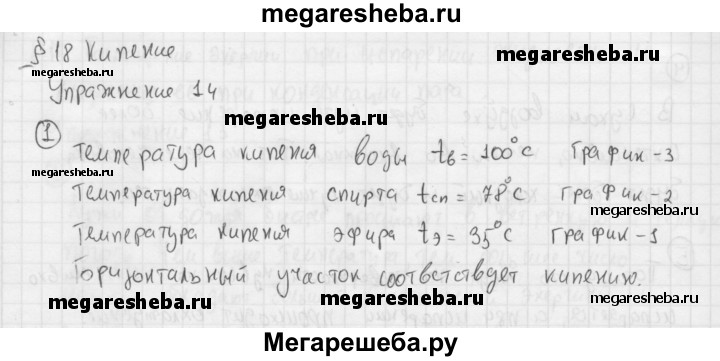 megaresheba.ru
§ 18 Кипение
megaresheba.ru
megaresheba.ru
Упражнение 14
megaresheba.ru
1
Температура кипения воды tв = 100°C График-3
megaresheba.ru
Температура кипения спирта tсп = 78°C График-2
megaresheba.ru
Температура кипения эфира tэ = 35°C График-1
Горизонтальный участок соответствует кипению.
megaresheba.ru
megaresheba.ru
megaresheba.ru
Мегарешеба.ру